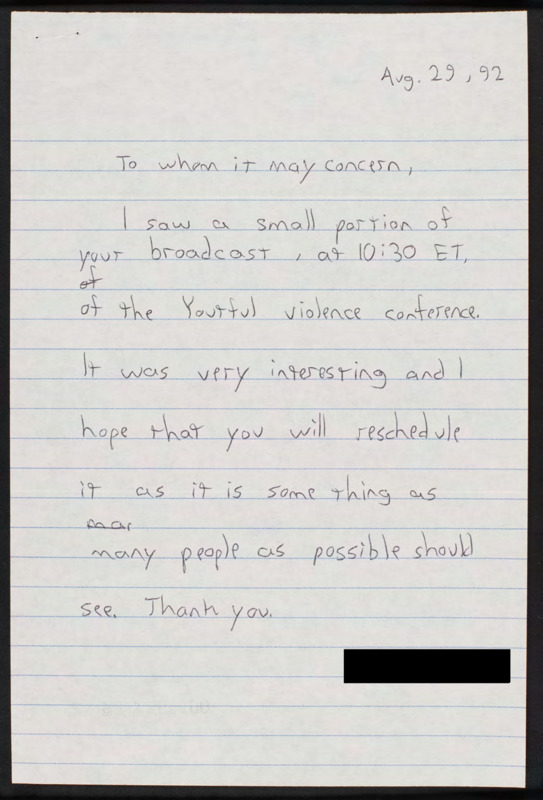 Aug. 29, 92
To whom it may concern,
I saw a small portion of
your broadcast, at 10:30 ET,
of
of the Youtful violence conference.
It was very interesting and I
hope that you will reschedule
it as it is some thing as
mar
many people as possible should
see. Thank you.